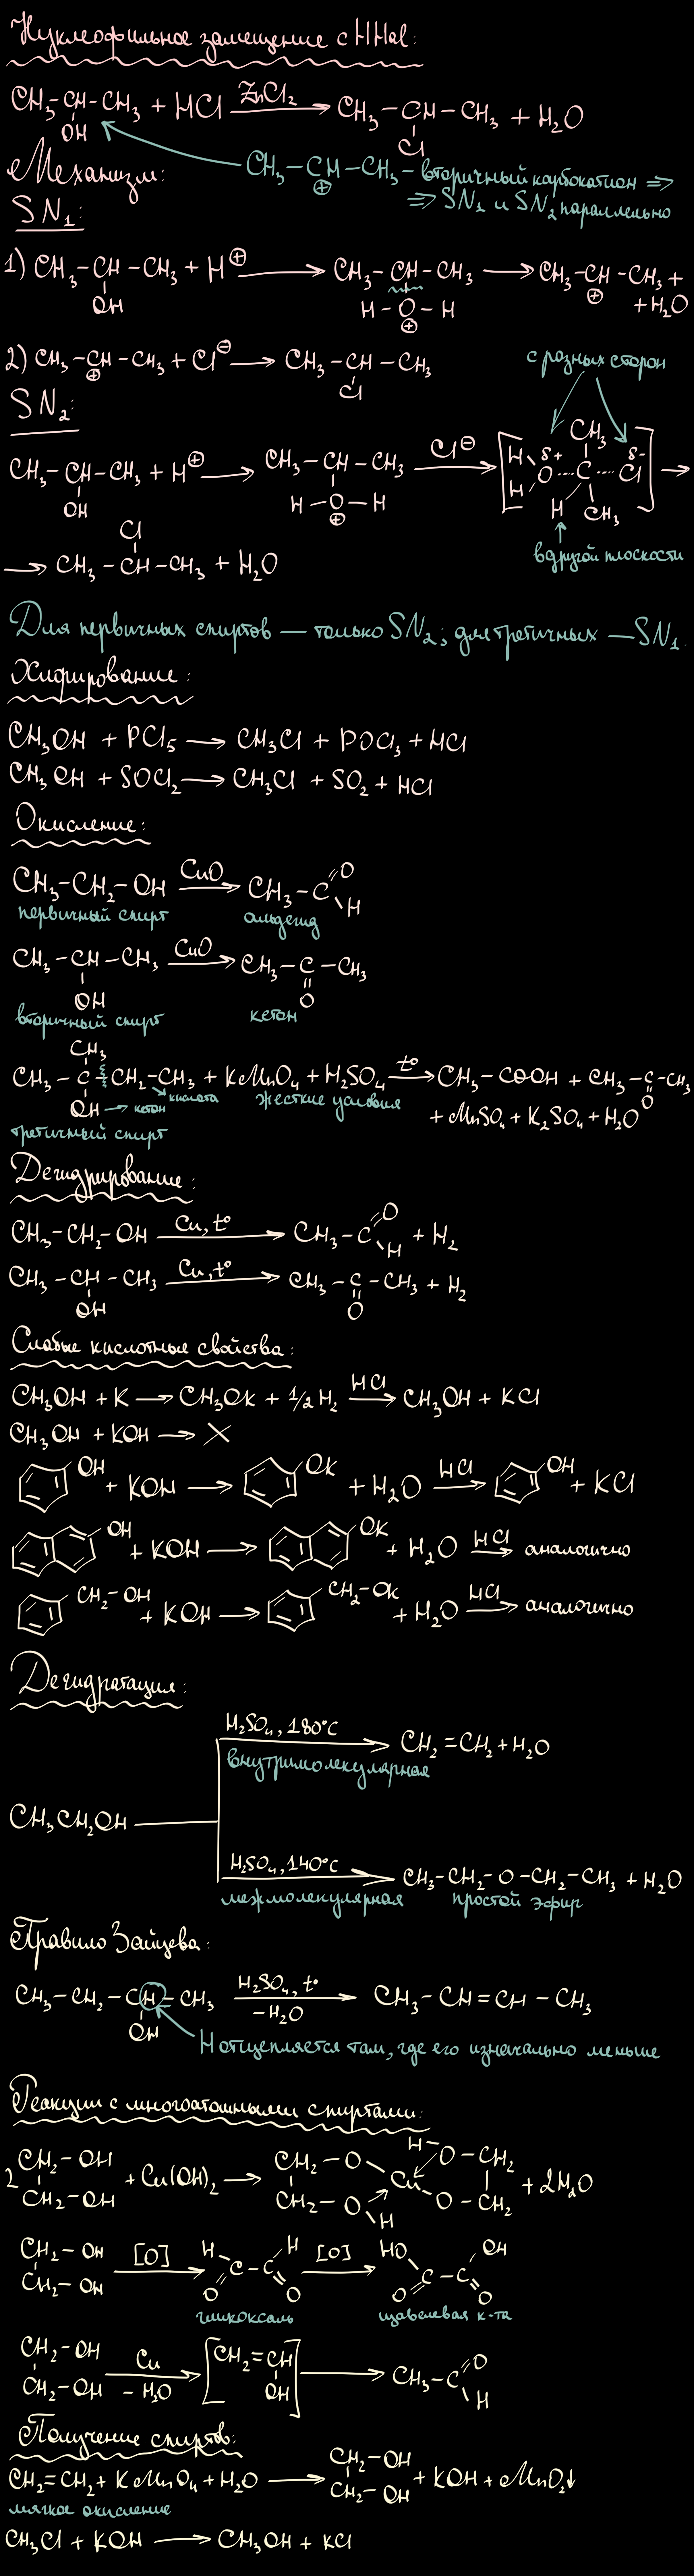 Нуклеофильное замещение с HHal:
CH₃-CH-CH₃ + HCl ZnCl₂→ CH₃-CH-CH₃ + H₂O
OH Cl
Механизм: CH₃-CH-CH₃ - вторичный карбокатион ⇒
⊕ ⇒ SN₁ и SN₂ параллельно
SN₁:
1) CH₃-CH-CH₃ + H⊕ → CH₃-CH-CH₃ → CH₃-CH-CH₃ +
OH H-O-H ⊕ +H₂O
⊕
2) CH₃-CH-CH₃ + Cl⊖ → CH₃-CH-CH₃
⊕ Cl
с разных сторон
SN₂:
CH₃-CH-CH₃ + H⊕ → CH₃-CH-CH₃ Cl⊖→ [H H O δ+ ··· C ··· Cl δ- CH₃ H CH₃] →
OH H-O-H
⊕
в другой плоскости
Cl
→ CH₃-CH-CH₃ + H₂O
Для первичных спиртов — только SN₂; для третичных — SN₁.
Хлфирование:
CH₃OH + PCl₅ → CH₃Cl + POCl₃ + HCl
CH₃OH + SOCl₂ → CH₃Cl + SO₂ + HCl
Окисление:
CH₃-CH₂-OH CuO→ CH₃-C=O
H
первичный спирт альдегид
CH₃-CH-CH₃ CuO→ CH₃-C-CH₃
OH O
вторичный спирт кетон
CH₃
CH₃-C-CH₂-CH₃ + KMnO₄ + H₂SO₄ t°→ CH₃-COOH + CH₃-C-CH₃
OH → кетон кислота жёсткие условия O
+ MnSO₄ + K₂SO₄ + H₂O
третичный спирт
Дегидрирование:
CH₃-CH₂-OH Cu, t°→ CH₃-C=O + H₂
H
CH₃-CH-CH₃ Cu, t°→ CH₃-C-CH₃ + H₂
OH O
Слабые кислотные свойства:
CH₃OH + K → CH₃OK + 1/2 H₂ HCl→ CH₃OH + KCl
CH₃OH + KOH → X
OH + KOH → OK + H₂O HCl→ OH + KCl
OH + KOH → OK + H₂O HCl→ аналогично
CH₂-OH + KOH → CH₂-OK + H₂O HCl→ аналогично
Дегидратация:
H₂SO₄, 180°C→ CH₂=CH₂ + H₂O
внутримолекулярная
CH₃CH₂OH
H₂SO₄, 140°C→ CH₃-CH₂-O-CH₂-CH₃ + H₂O
межмолекулярная простой эфир
Правило Зайцева:
CH₃-CH₂-CH-CH₃ H₂SO₄, t°→ CH₃-CH=CH-CH₃
OH -H₂O
H отщепляется там, где его изначально меньше
Реакции с многоатомными спиртами:
2 CH₂-OH + Cu(OH)₂ → CH₂-O Cu H-O-CH₂ + 2H₂O
CH₂-OH CH₂-O O-CH₂
H
CH₂-OH [O]→ H C-C H [O]→ HO C-C OH
CH₂-OH O O O O
глиоксаль щавелевая к-та
CH₂-OH Cu→ [CH₂=CH] → CH₃-C=O
CH₂-OH -H₂O OH H
Получение спиртов:
CH₂=CH₂ + KMnO₄ + H₂O → CH₂-OH + KOH + MnO₂↓
CH₂-OH
мягкое окисление
CH₃Cl + KOH → CH₃OH + KCl